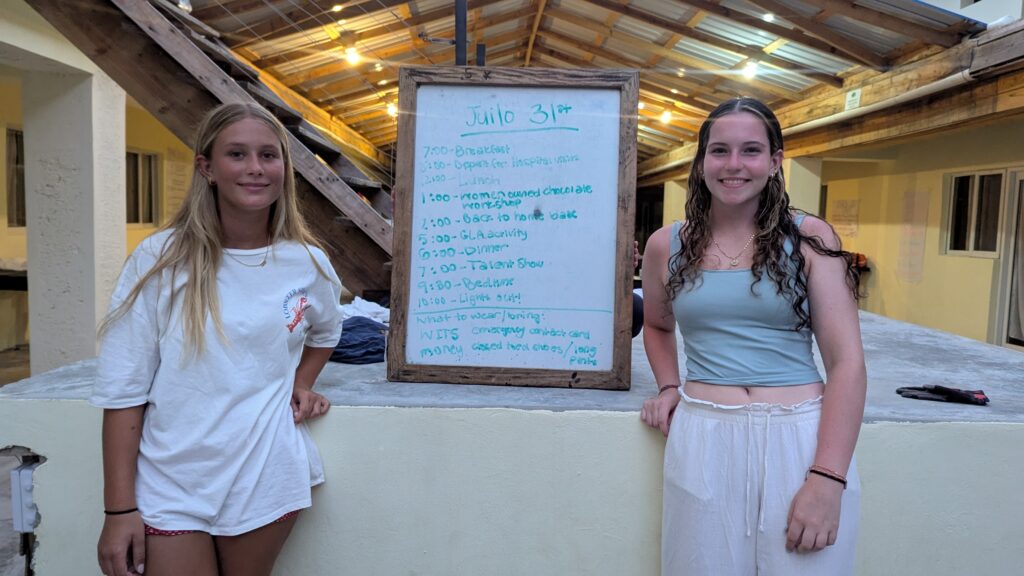 Juilo 31st
7:00 - Breakfast
Depart for Hospital visits
12:00 - Lunch
1:00 - Women owned chocolate
workshop
2:00 - Back to home base
5:00 - GLA activity
6:00 - Dinner
7:00 - Talent Show
9:30 - Bedtime
10:00 - Lights out!
What to wear/bring:
emergency contact card
money closed toed shoes/long
pants